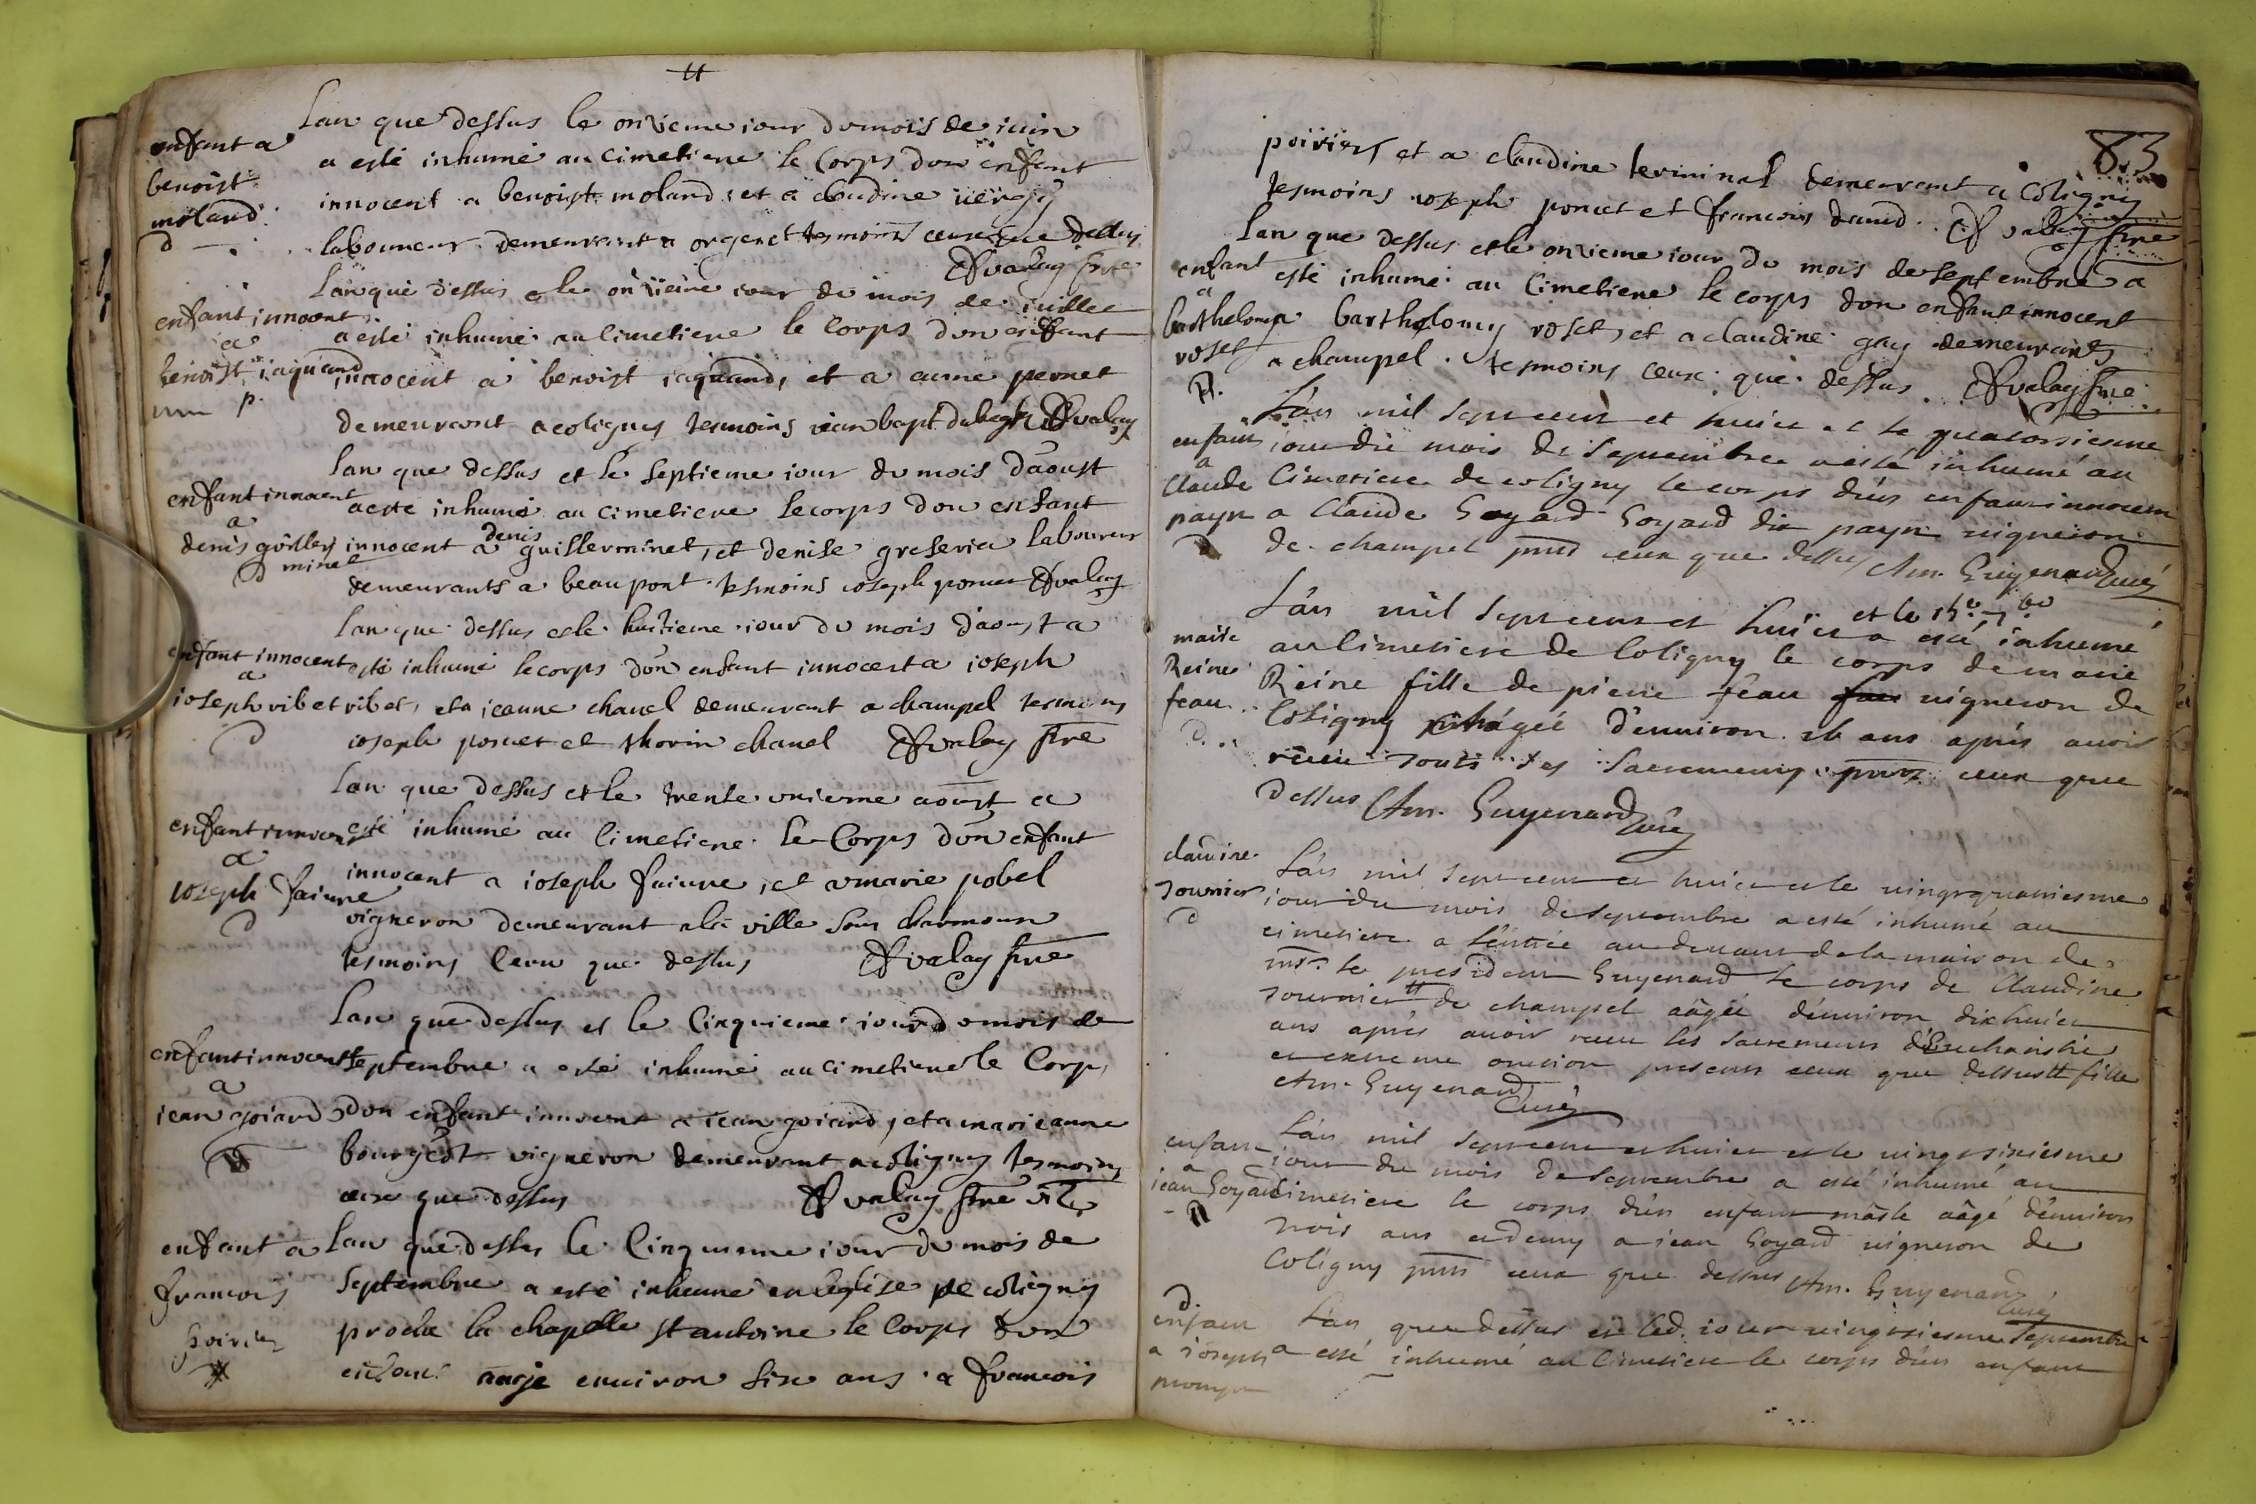 Lan que dessus le onzieme iour du mois de iuin
enfant a
benoist
moland
a esté inhumé au cimetiere le Corps dun enfant
innocent a benoist moland et a claudine
laboureur demeurant a orgenet tesmoins ceux que dessus
valay
Lan que dessus et le onzieme iour du mois de iuillet
enfant innocent
a
benoist iaquand
a esté inhumé au cimetiere le Corps don enfant
innocent a benoist iaquand, et a anne pernet
demeurant a coligny tesmoins iean bapt valay
lan que dessus et le septieme iour du mois daoust
enfant innocent
a
denis guiller
minet
a este inhumé au cimetiere le corps don enfant
innocent a denis guillerminet, et denise greseriea laboureur
demeurants a beaupont tesmoins ioseph poncet valay
lan que dessus et le huitieme iour du mois daoust a
enfant innocent
a
ioseph vibet
esté inhumé le corps don enfant innocent a ioseph
vibet, et a ieanne chanel demeurant a champel tesmoins
ioseph poncet et thorin chanel valay
lan que dessus et le trente unieme aoust a
enfant innocent
a
ioseph faiure
esté inhumé au Cimetiere le Corps don enfant
innocent a ioseph faiure, et a marie pobel
vigneron demeurant a la ville sous charmoux
tesmoins ceux que dessus valay
Lan que dessus et le Cinquieme iour du mois de
enfant innocent
a
iean goiard
septembre a esté inhumé au cimetiere le Corps
don enfant innocent a iean goiard, et a marieanne
bourgeot vigneron demeurant a coligny tesmoins
ceux que dessus valay
enfant a
francois
poirier
Lan que dessus le Cinquieme iour du mois de
septembre a esté inhumé en leglise de coligny
proche la chapelle st antoine le Corps don
enfant aagé enuiron six ans a francois
83
poiriers et a claudine terminal demeurant a Coligny
tesmoins ioseph poncet et francois dauid valay
Lan que dessus et le onzieme iour du mois de septembre a
enfant
a
bartholomy
roset
esté inhumé au Cimetiere le corps don enfant innocent
a bartholomy roset, et a claudine gay demeurants
a champel tesmoins ceux que dessus valay
L'an mil sept cent et huict et le quatorsiesme
enfant
a
Claude
payn
iour du mois de Septembre a esté inhumé au
Cimetiere de coligny le corps d'un enfant innocent
a Claude Goyard Goyard dit payn uigneron
de champel pnts ceux que dessus Am. Guyenard curé
L'an mil sept cent et huict et le 15e 7bre a esté inhumé
marie
Reine
feau
au Cimetiere de Coligny le corps de marie
Reine fille de pierre feau uigneron de
Coligny aagée d'enuiron ans aprés auoir
receu touts les Sacrements pnts ceux que
dessus Am. Guyenard curé
claudine
tournier
L'an mil sept cent et huict et le uingtquatriesme
iour du mois de Septembre a esté inhumé au
cimetiere a l'entrée au deuant de la maison de
mr. le president Guyenard le corps de Claudine
tournier # de champel aagée d'enuiron dixhuict
ans aprés auoir receu les Sacrements d'Eucharistie
et extreme onction presents ceux que dessus # fille
Am. Guyenard Curé
enfant
a
iean Goyard
L'an mil sept cent et huict et le uingtsixiesme
iour du mois de Septembre a esté inhumé au
cimetiere le corps d'un enfant masle aagé d'enuiron
trois ans et demy a iean Goyard uigneron de
Coligny pnts ceux que dessus Am. Guyenard
curé
enfant
a ioseph
L'an que dessus et led. iour uingtsiesme Septembre
a esté inhumé au Cimetiere le corps d'un enfant